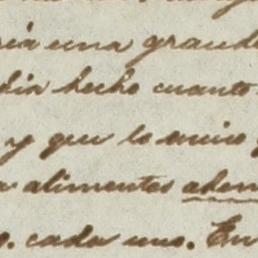 una grande
dia hecho cuanto
y que lo unico
alimentos
cada uno. En